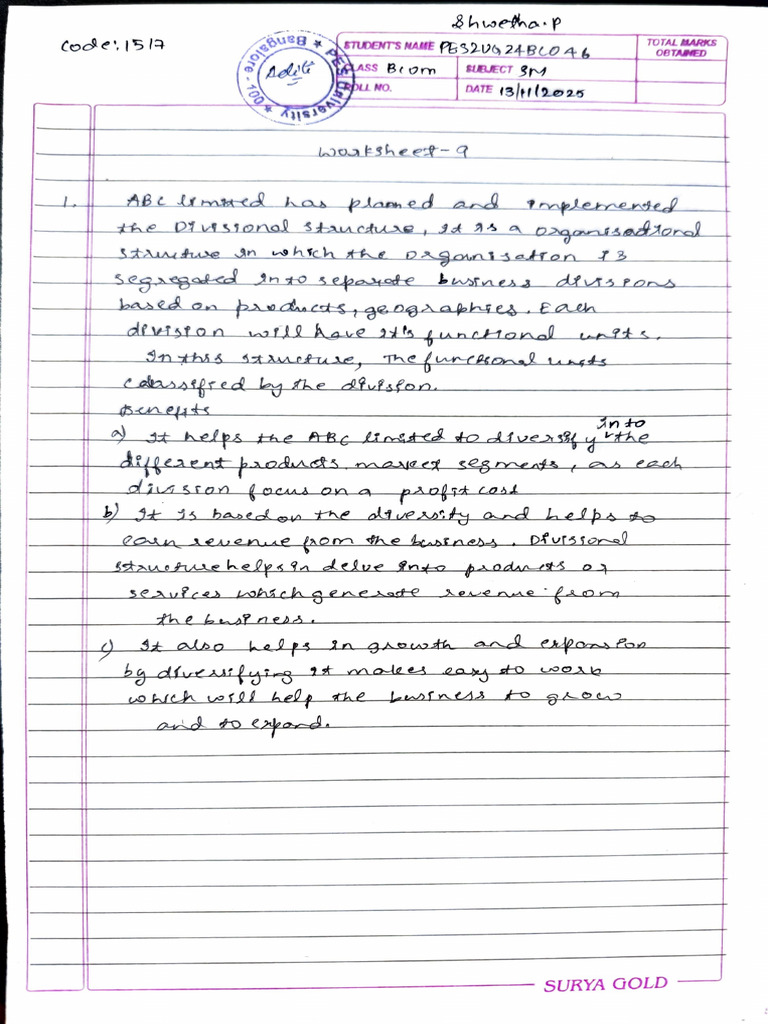 Shwetha.P
Code: 1517
STUDENT'S NAME PES2UG24BC046
TOTAL MARKS OBTAINED
CLASS Bcom
SUBJECT SM
ROLL NO.
DATE 13/11/2025
PES University * Bangalore - 100 *
Worksheet-9
1. ABC limited has planned and implemented
the Divisional structure, it is a organisational
structure in which the organisation is
segregated into separate business divisions
based on products, geographies. Each
division will have it's functional units.
In this structure, the functional units
classified by the division.
Benefits
a) It helps the ABC limited to diversify into the
different products market segments, as each
division focus on a profit cost
b) It is based on the diversity and helps to
earn revenue from the business. Divisional
structure helps in delve into products or
services which generate revenue from
the business.
c) It also helps in growth and expansion
by diversifying it makes easy to work
which will help the business to grow
and to expand.
SURYA GOLD